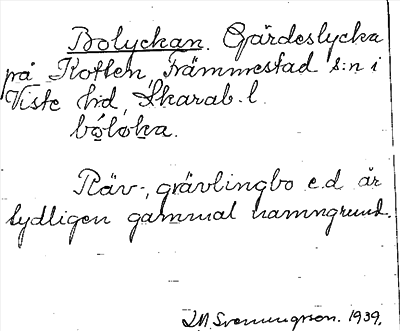 Bolyckan. Gärdeslycka
på Kotten, Främmestad s:n i
Viste hd, Skarab. l.
bóloka.
Räv-, grävlingbo e.d är
tydligen gammal namngrund.
1939.